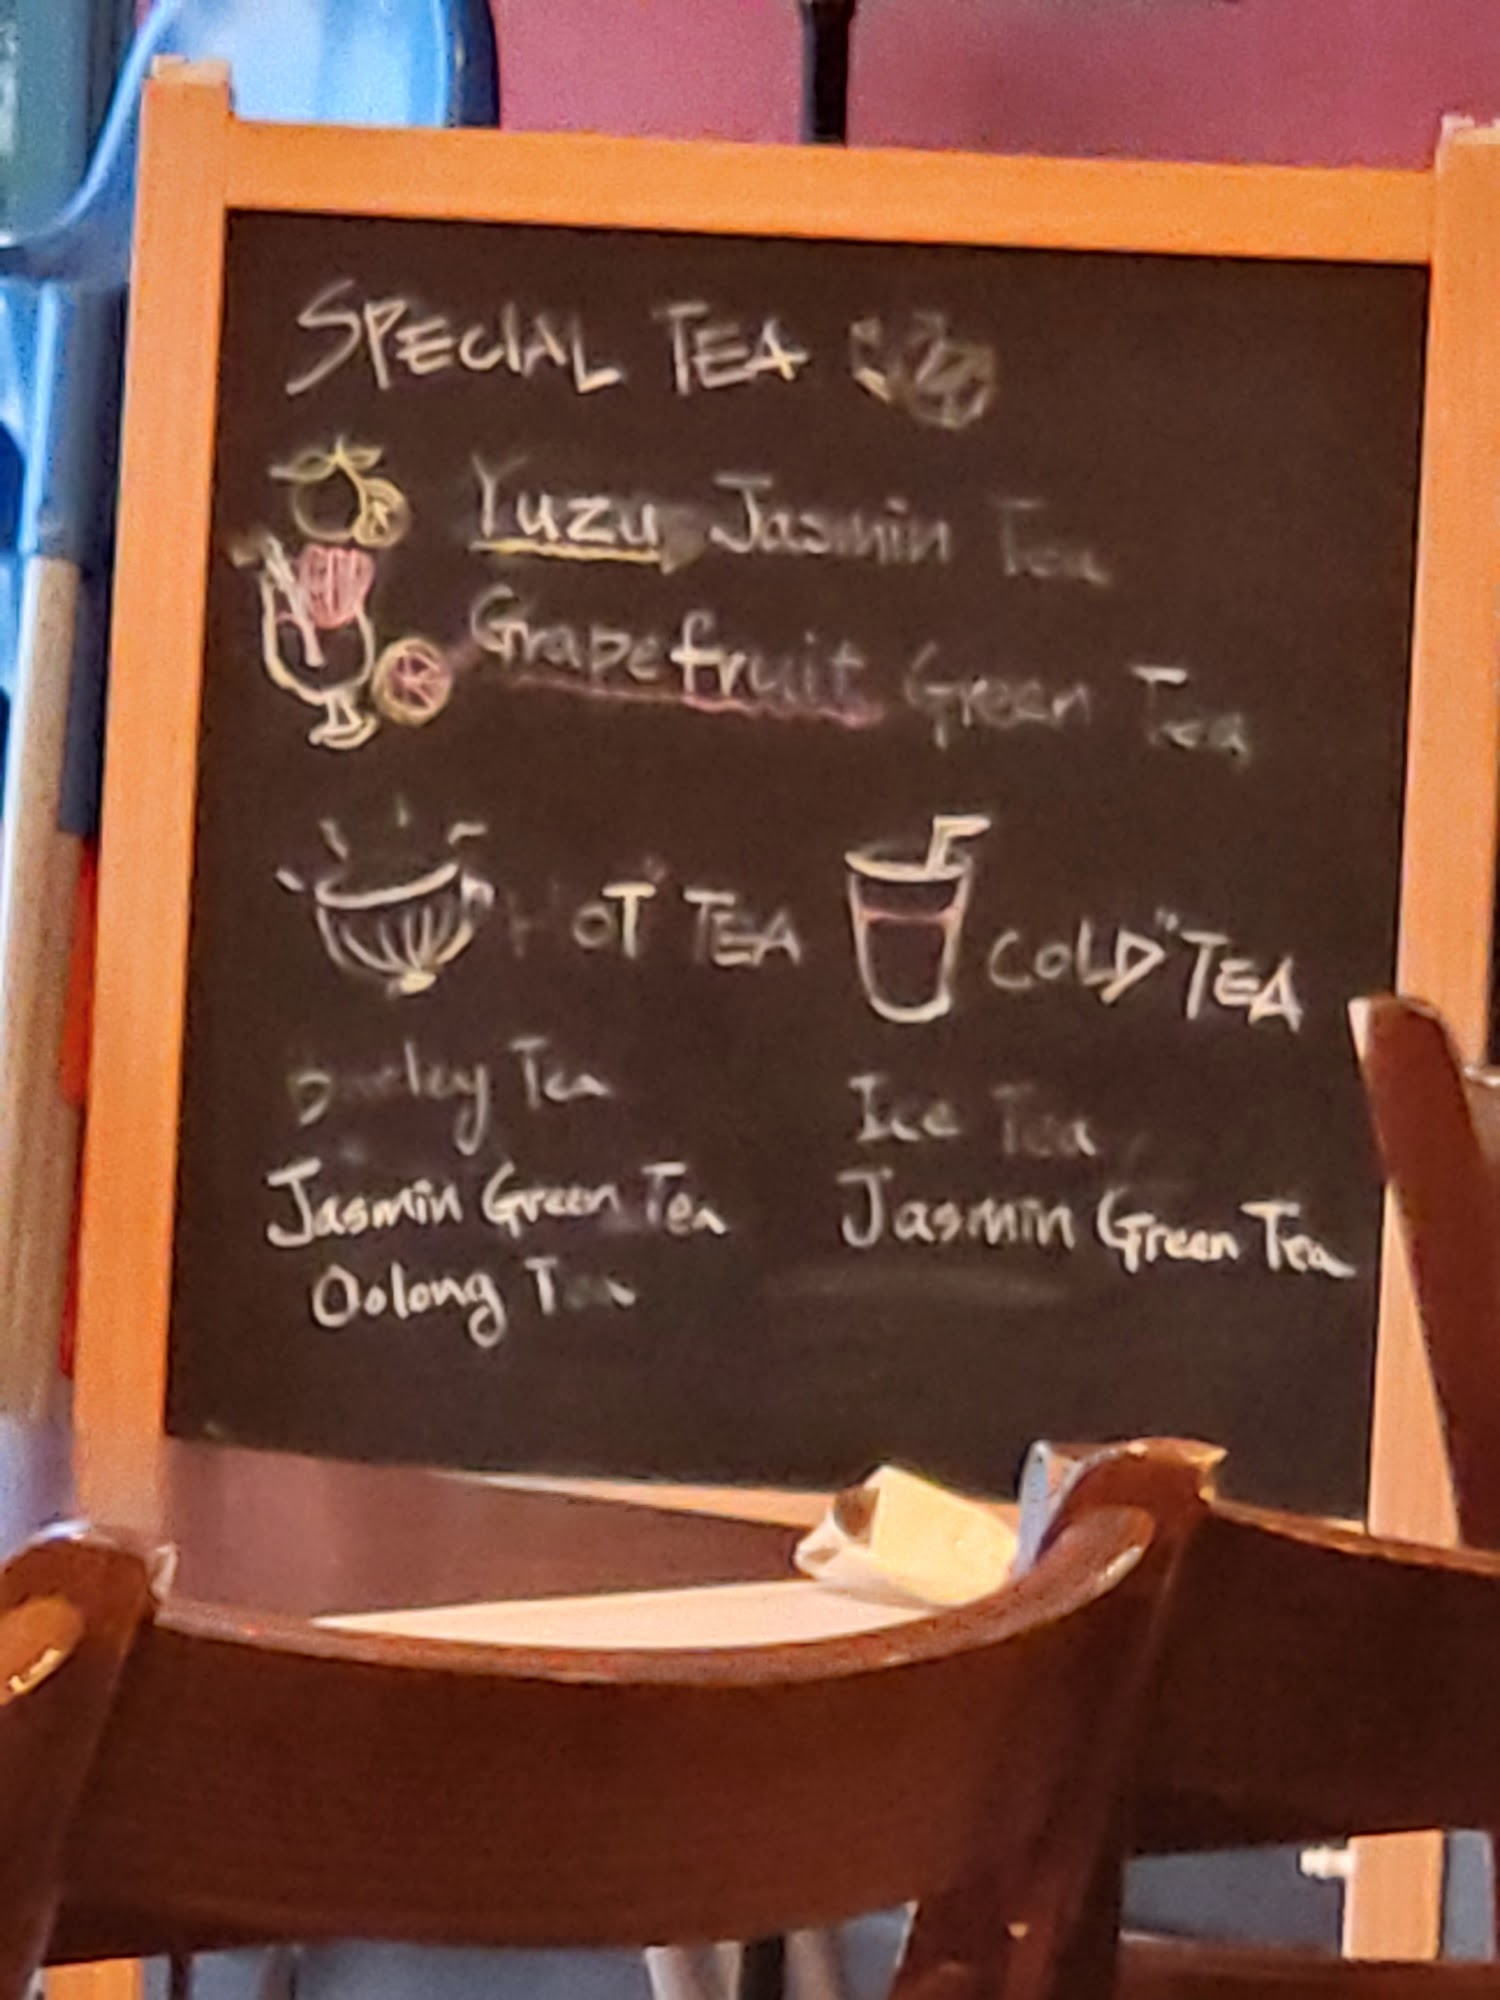 SPECIAL TEA
Yuzu Jasmin Tea
Grapefruit Green Tea
HOT" TEA
COLD" TEA
Barley Tea
Jasmin Green Tea
Oolong Tea
Ice Tea
Jasmin Green Tea